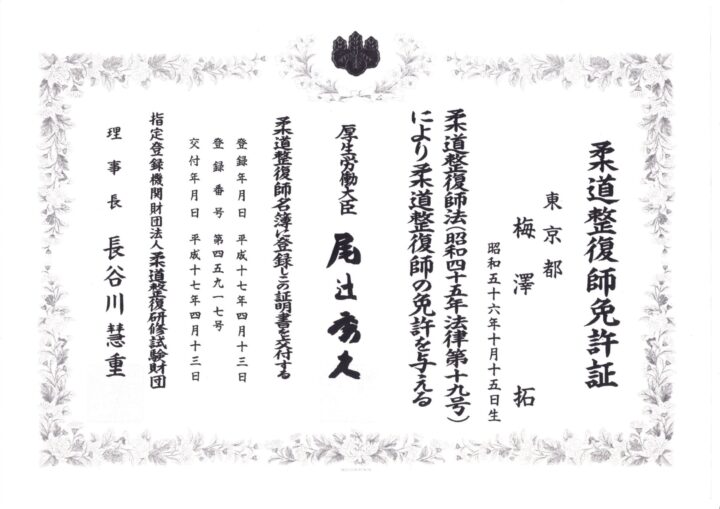 柔道整復師免許証
東京都
梅澤 拓
昭和五十六年十月十五日生
柔道整復師法(昭和四十五年法律第十九号)
により柔道整復師の免許を与える
厚生労働大臣 尾辻秀久
柔道整復師名簿に登録しこの証明書を交付する
登録年月日 平成十七年四月十三日
登録番号 第四五九一七号
交付年月日 平成十七年四月十三日
指定登録機関財団法人柔道整復研修試験財団
理事長 長谷川慧重